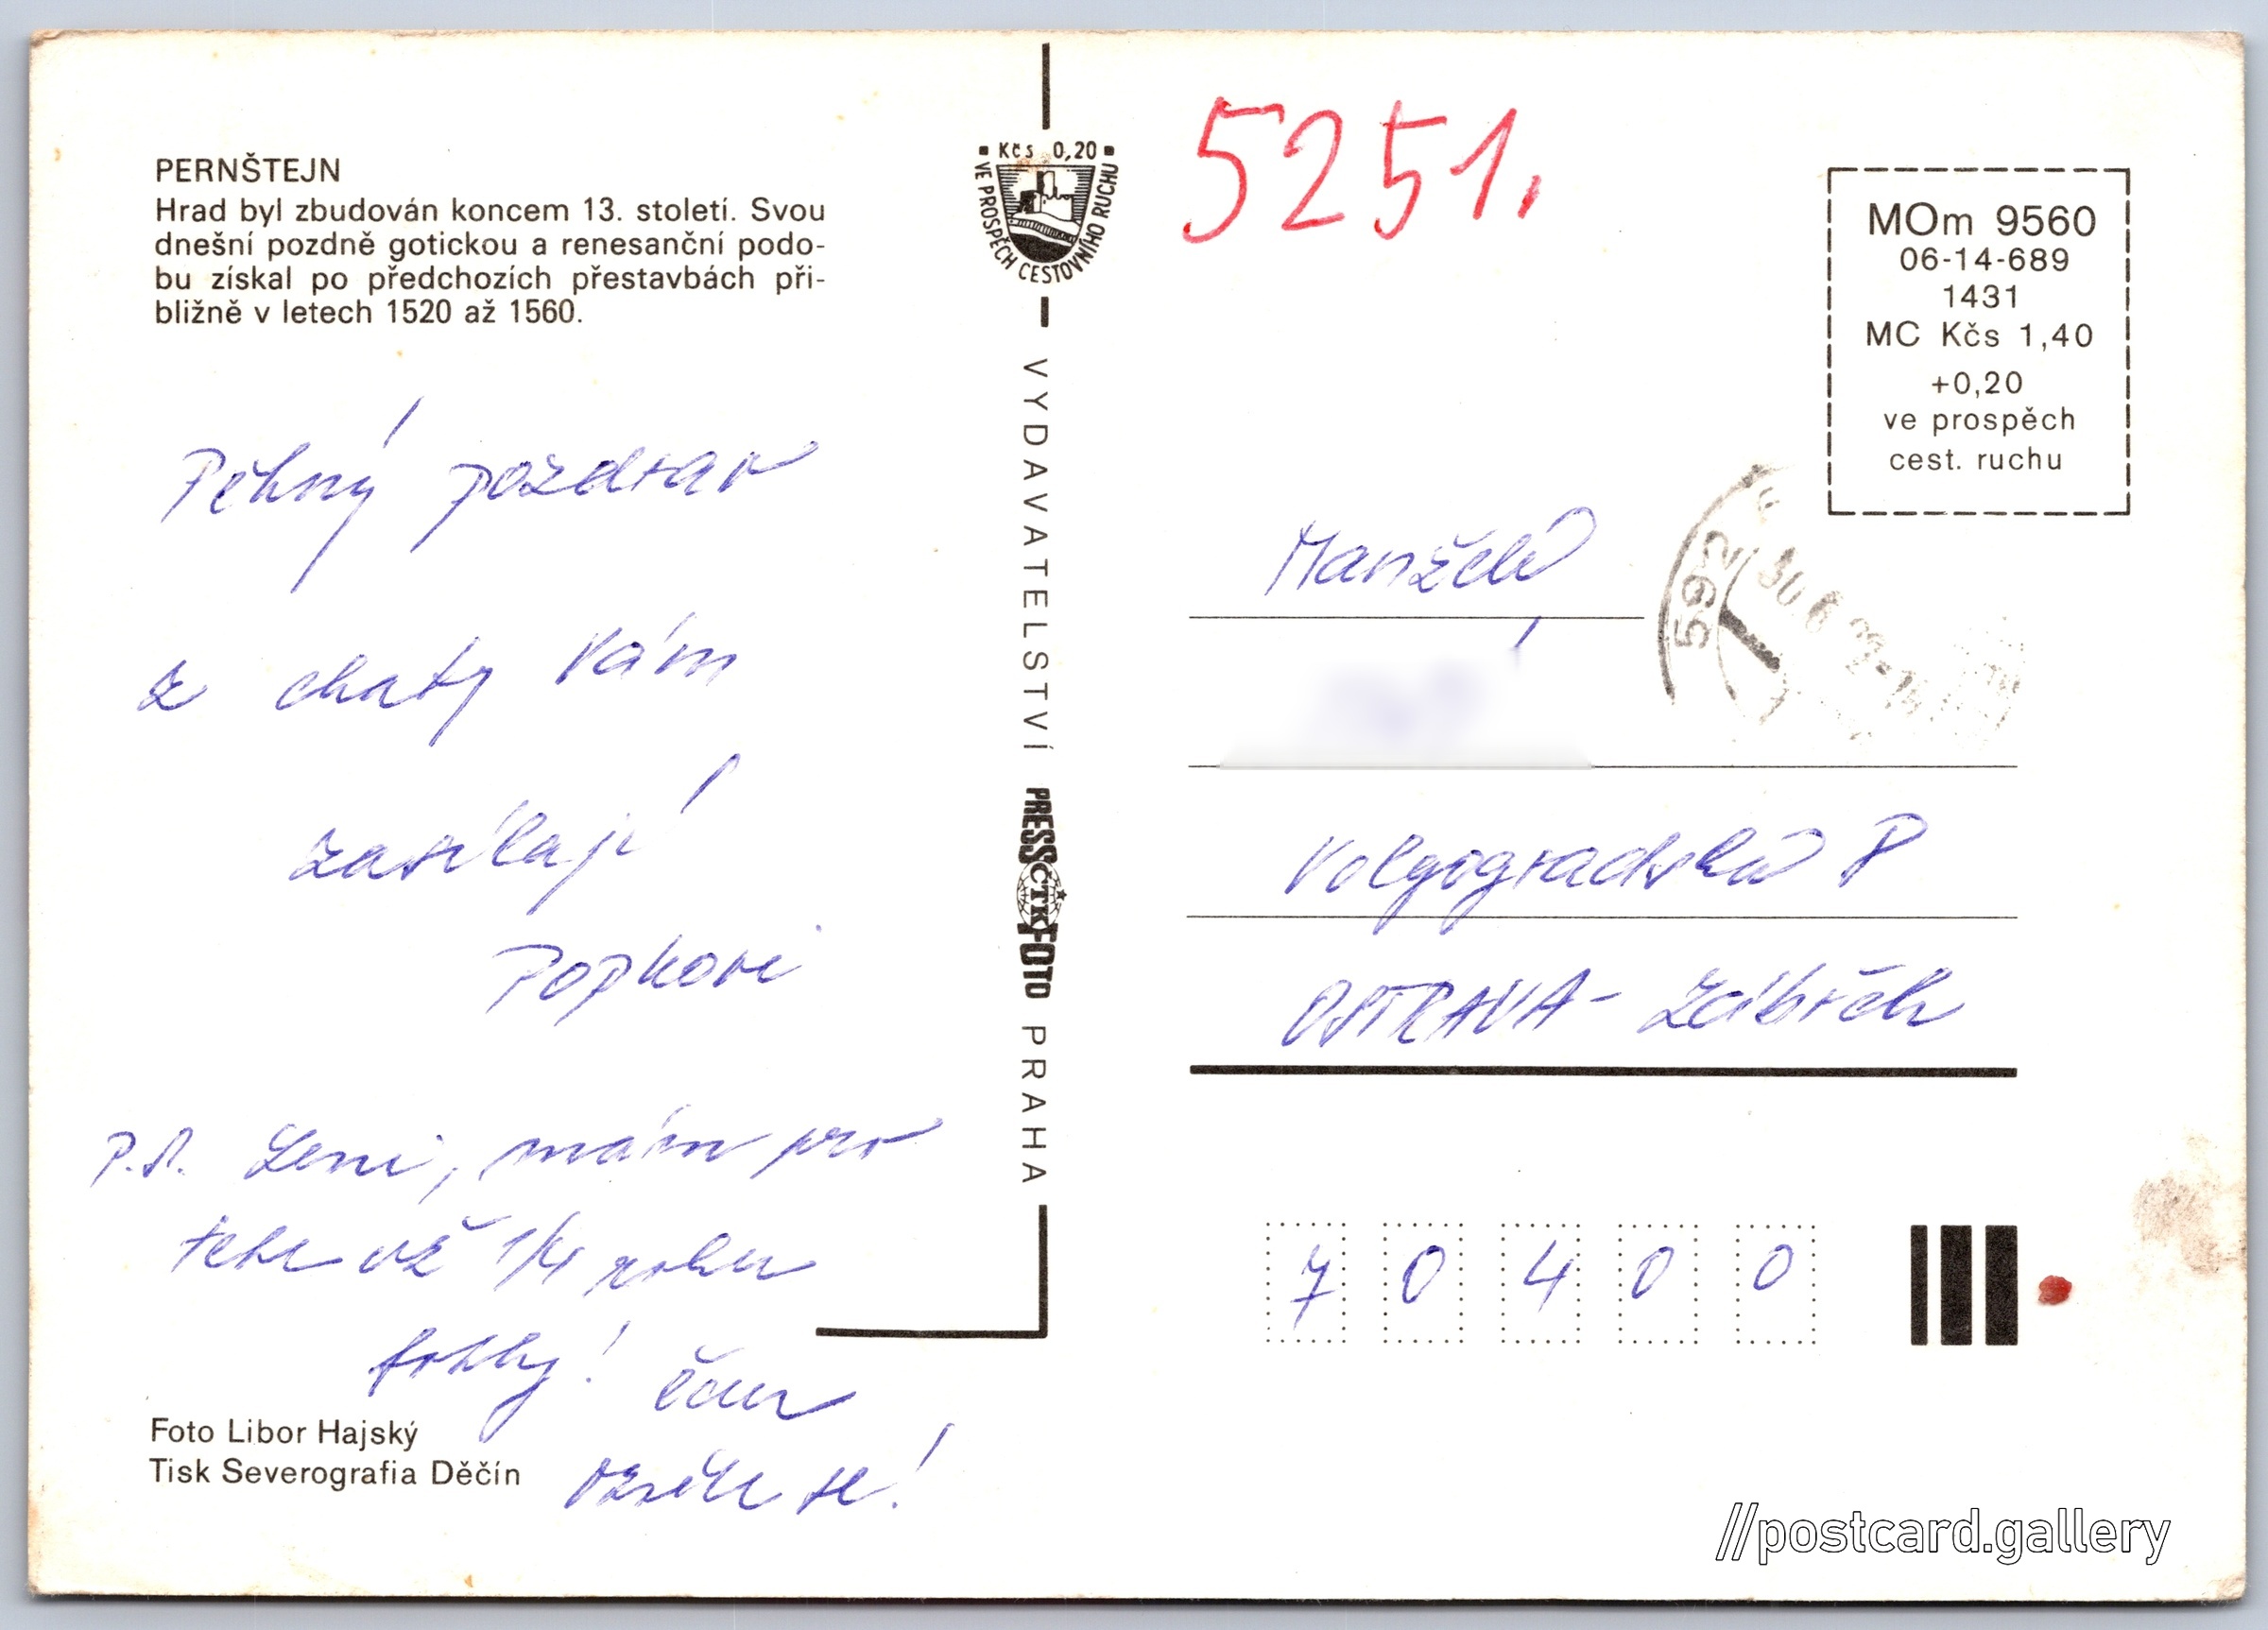 PERNŠTEJN
Hrad byl zbudován koncem 13. století. Svou
dnešní pozdně gotickou a renesanční podo-
bu získal po předchozích přestavbách při-
bližně v letech 1520 až 1560.
Pěkný pozdrav
z chaty Vám
zasílají
Popkovi
P.S. Leni, mám pro
tebe už 1/4 roku
fotky!
ozvěte se!
Foto Libor Hajský
Tisk Severografia Děčín
Kčs 0,20
VE PROSPĚCH CESTOVNÍHO RUCHU
VYDAVATELSTVÍ PRESSFOTO PRAHA
ČTK
5251.
MOm 9560
06-14-689
1431
MC Kčs 1,40
+0,20
ve prospěch
cest. ruchu
592
Manželé
Volgogradská
OSTRAVA - Zábřeh
70400
//postcard.gallery